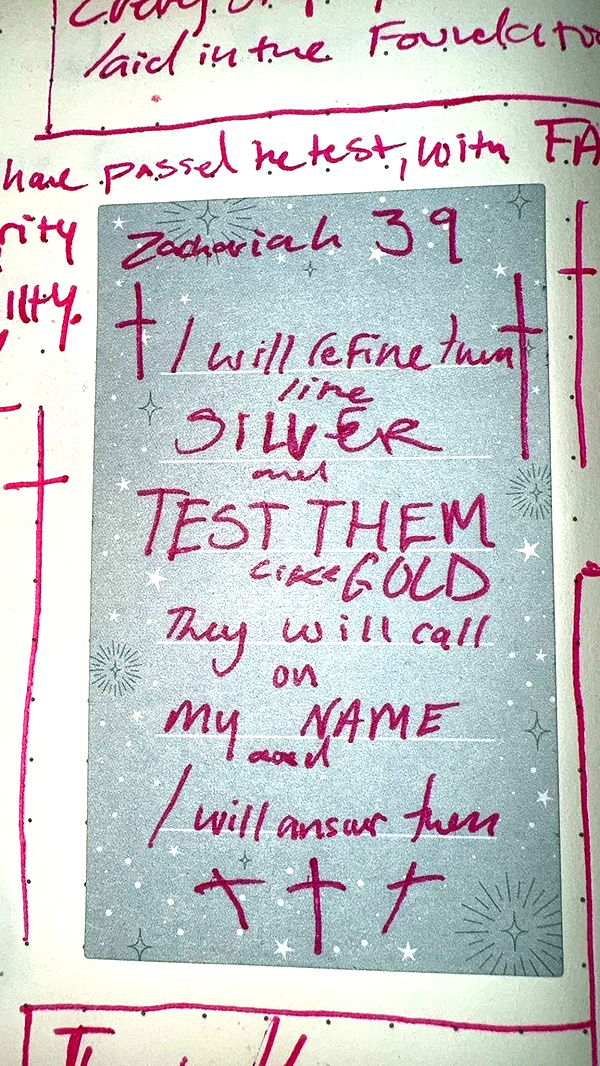 laid in the
have passed the test, with FA
Zachariah 39
I will refine them
like
SILVER
and
TEST THEM
like GOLD
They will call
on
My NAME
and
I will answer them